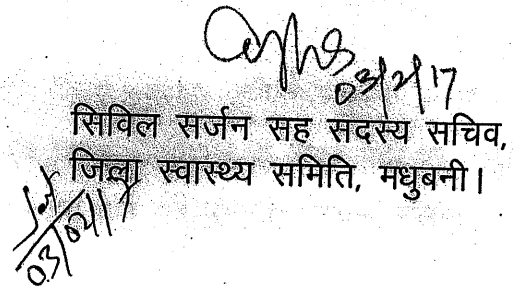 03/2/17
सिविल सर्जन सह सदस्य सचिव,
जिला स्वास्थ्य समिति, मधुबनी।
03/02/17